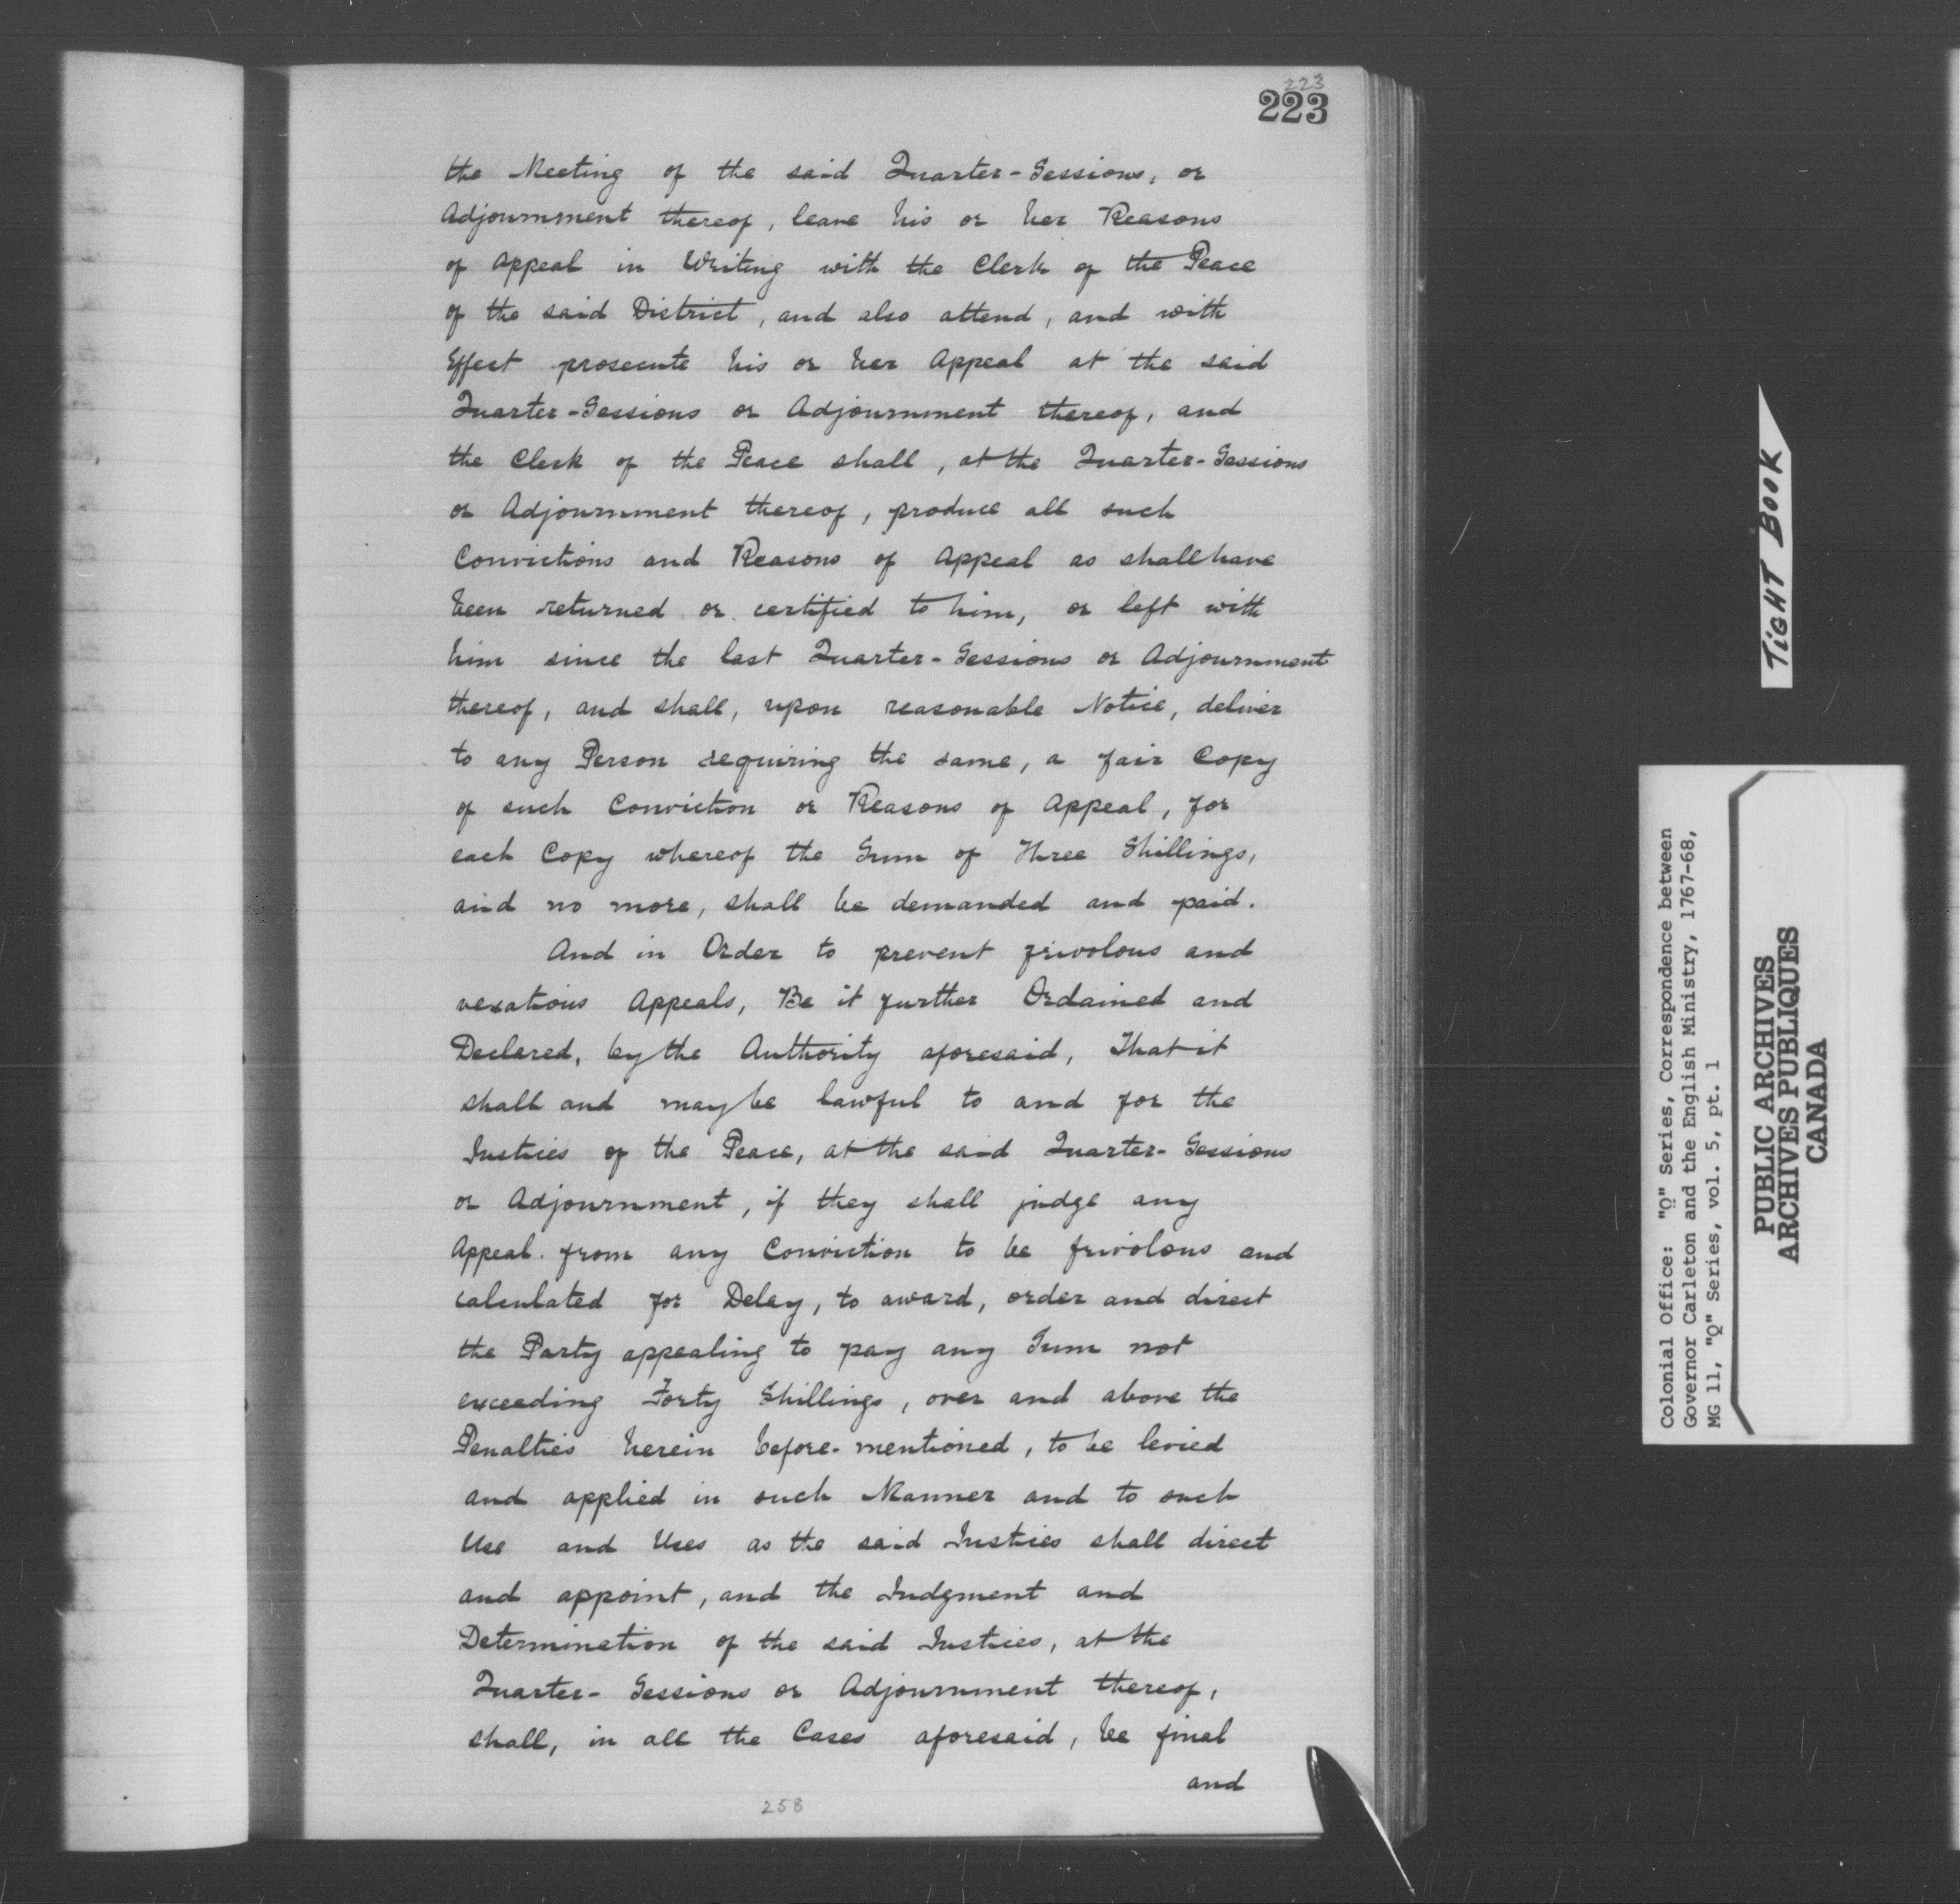 223
223
the Meeting of the said Quarter-Sessions, or
Adjournment thereof, leave his or her Reasons
of Appeal in Writing with the Clerk of the Peace
of the said District, and also attend, and with
Effect prosecute his or her Appeal at the said
Quarter-Sessions or Adjournment thereof, and
the Clerk of the Peace shall, at the Quarter-Sessions
or Adjournment thereof, produce all such
Convictions and Reasons of Appeal as shall have
been returned or certified to him, or left with
him since the last Quarter-Sessions or Adjournment
thereof, and shall, upon reasonable Notice, deliver
to any Person requiring the same, a fair Copy
of such Conviction or Reasons of Appeal, for
each Copy whereof the Sum of Three Shillings,
and no more, shall be demanded and paid.
And in Order to prevent frivolous and
vexatious Appeals, Be it further Ordained and
Declared, by the Authority aforesaid, That it
shall and may be lawful to and for the
Justices of the Peace, at the said Quarter-Sessions
or Adjournment, if they shall judge any
Appeal from any Conviction to be frivolous and
calculated for Delay, to award, order and direct
the Party appealing to pay any Sum not
exceeding Forty Shillings, over and above the
Penalties herein before-mentioned, to be levied
and applied in such Manner and to such
Use and Uses as the said Justices shall direct
and appoint, and the Judgment and
Determination of the said Justices, at the
Quarter-Sessions or Adjournment thereof,
shall, in all the Cases aforesaid, be final
and
258
TIGHT BOOK
Colonial Office: "Q" Series, Correspondence between
Governor Carleton and the English Ministry, 1767-68,
MG 11, "Q" Series, vol. 5, pt. 1
PUBLIC ARCHIVES
ARCHIVES PUBLIQUES
CANADA